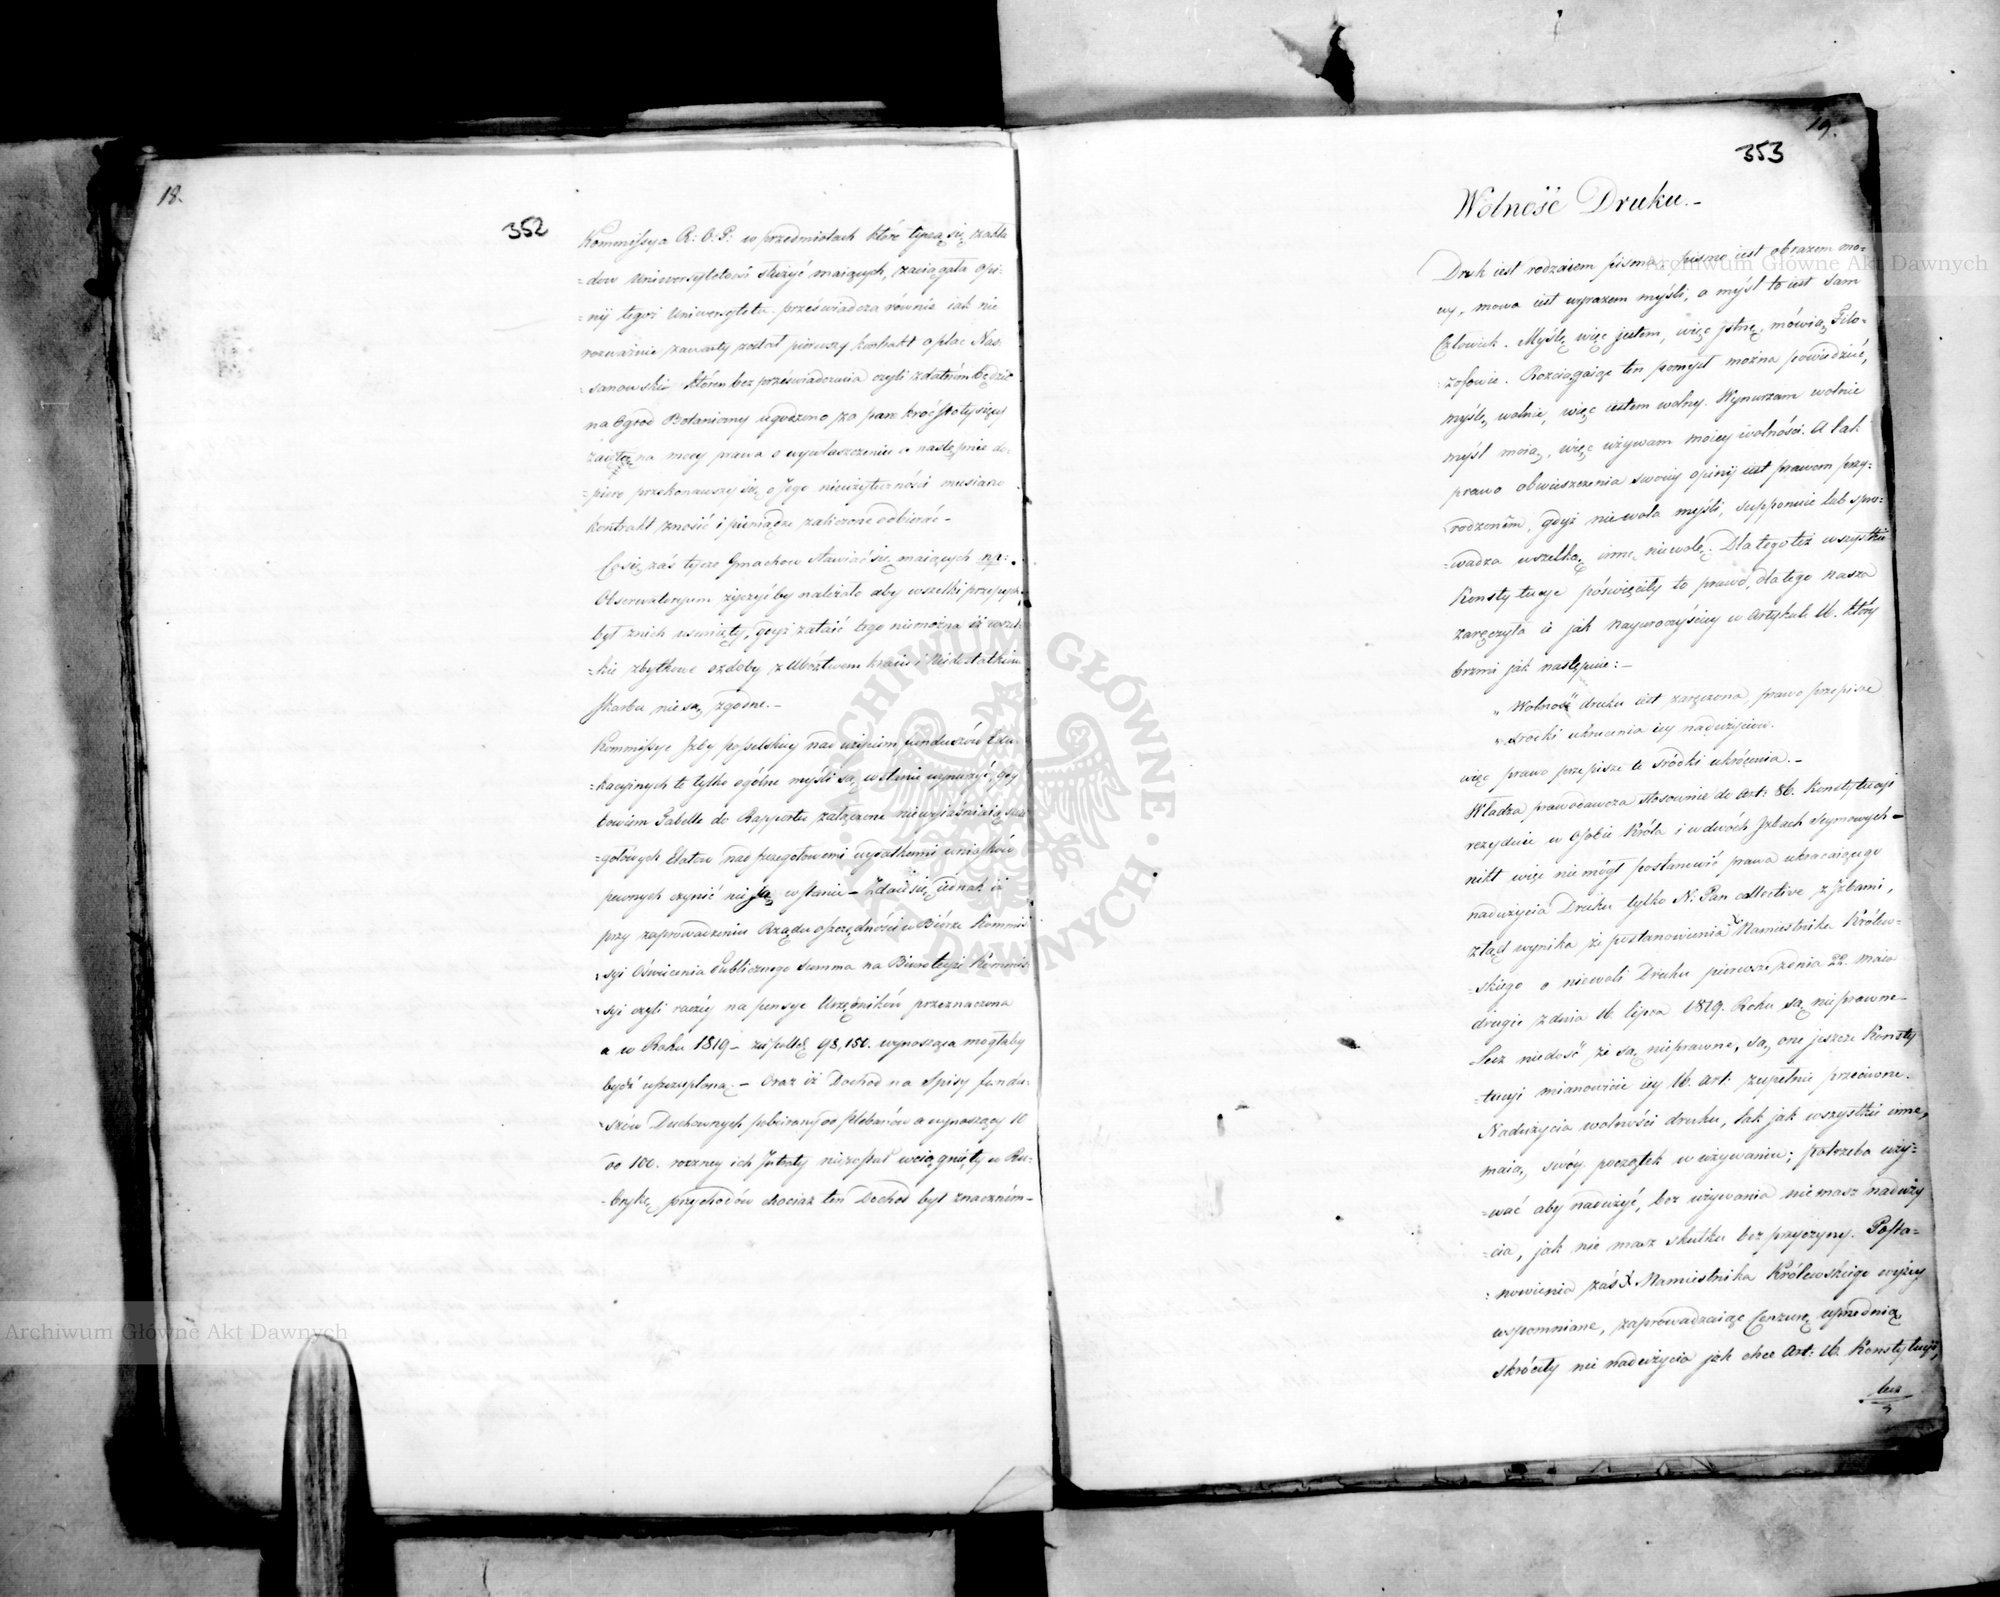 18.
352
Kommissya R: O: P: w przedmiotach które tyczą się zakła
=dow Uniwersytetowi służyć maiących, zaciągała opi-
=nij tegoż Uniwersytetu przeświadcza równie iak nie
rozważnie zawarty został pierwszy kontrakt o plac Nas-
=sanowski, którem bez przeświadczenia czyli zdatnem będzie
na Ogrod Botaniczny ugodzono za parę kroć stotysięcy
zaiętę na mocy prawa o wywłaszczeniu a następnie do-
=piero przekonawszy się o Jego nieużyteczności musiano
kontrakt znosić i pieniądze zaliczone odbierać -
Co się zaś tycze Gmachow stawiać się maiących np:
Obserwatoryum życzyćby należało aby wszelki przepych
był znich usunięty, gdyż zataić tego niemożna iż wszel-
=kie zbytkowe ozdoby z Ubóztwem kraiu i Niedostatkiem
Skarbu nie są zgodne. -
Kommissye Izby poselskiey nad użyciem funduszów Edu-
=kacyinych te tylko ogólne myśli są w stanie wynurzyć, gdy
bowiem Tabelle do Rapportu załączone niewyiaśniaią szcze
=gółowych Etatow nad szczegółowemi wydatkami wniosków
pewnych czynić nie są w stanie - Zdaie się iednak iż
przy zaprowadzeniu Rządu oszczędności w Biórze Kommis
=syi Oświecenia Publicznego Summa na Biuro teyże Kommis
=syi czyli raczey na pensye Urzędników przeznaczona
a w Roku 1819 - złł polld 98,150. wynosząca mogłaby
bydź uszczuploną. - Oraz iż Dochod na Spisy fundu-
=szów Duchownych pobierany od plebanów a wynoszący 10
od 100. roczney ich Intraty niezostał wciągnięty w Ru-
=brykę przychodów chociaż ten Dochod był znacznem -
19.
353
Wolność Druku. -
Druk iest rodzaiem pisma, pismo iest obrazem mo-
wy, mowa iest wyrazem myśli, a myśl to iest Sam
Człowiek. Myślę więc jestem, więc jstnę, mówią Filo-
=zofowie. Rozciągaiąc ten pomysł można powiedzieć,
myślę wolnie, więc iestem wolny. Wynurzam wolnie
myśl moią, więc używam moiey wolności. A tak
prawo obwieszczenia swoiey opinij iest prawem przy-
=rodzonem, gdyż niewola myśli, supponuie lub spro-
=wadza wszelką inną niewolę. Dla tego też wszystkie
Konstytucye poświęciły to prawo, dla tego nasza
zaręczyła ie jak nayuroczyściey w Artykule 16. który
brzmi jak następuie: -
„Wolność druku iest zaręczona, prawo przepisze
„srodki ukrucenia iey nadużyciow.
więc prawo przepisze te środki ukrócenia. -
Władza prawodawcza stosownie do Art: 86. Konstytucyi
rezyduie w Osobie Króla i w dwóch Izbach Seymowych -
nikt więc niemógł postanowić prawa ukracaiącego
nadużycia Druku tylko N: Pan collective z Izbami,
ztąd wynika że postanowienia X Namiestnika Królew-
=skiego o niewoli Druku pierwsze z dnia 22. Maia
drugie z dnia 16. lipca 1819. Roku są nieprawne -
Lecz niedość że są nieprawne, są one jeszcze Konsty
=tucyi mianowicie iey 16. Art: zupełnie przeciwne.
Nadużycia wolności druku, tak jak wszystkie inne,
maią swóy początek w używaniu; potrzeba uży-
=wać aby nadużyć, bez używania nie masz nadużyc
=cia, jak nie masz skutku bez przyczyny. Posta-
=nowienia zaś X Namiestnika Królewskiego wyżey
wspomniane, zaprowadzaiąc Cenzurę uprzednią
skróciły nie nadużycia jak chce Art: 16. Konstytucyi,
lecz
Archiwum Główne Akt Dawnych
Archiwum Główne Akt Dawnych
ARCHIWUM GŁÓWNE AKT DAWNYCH